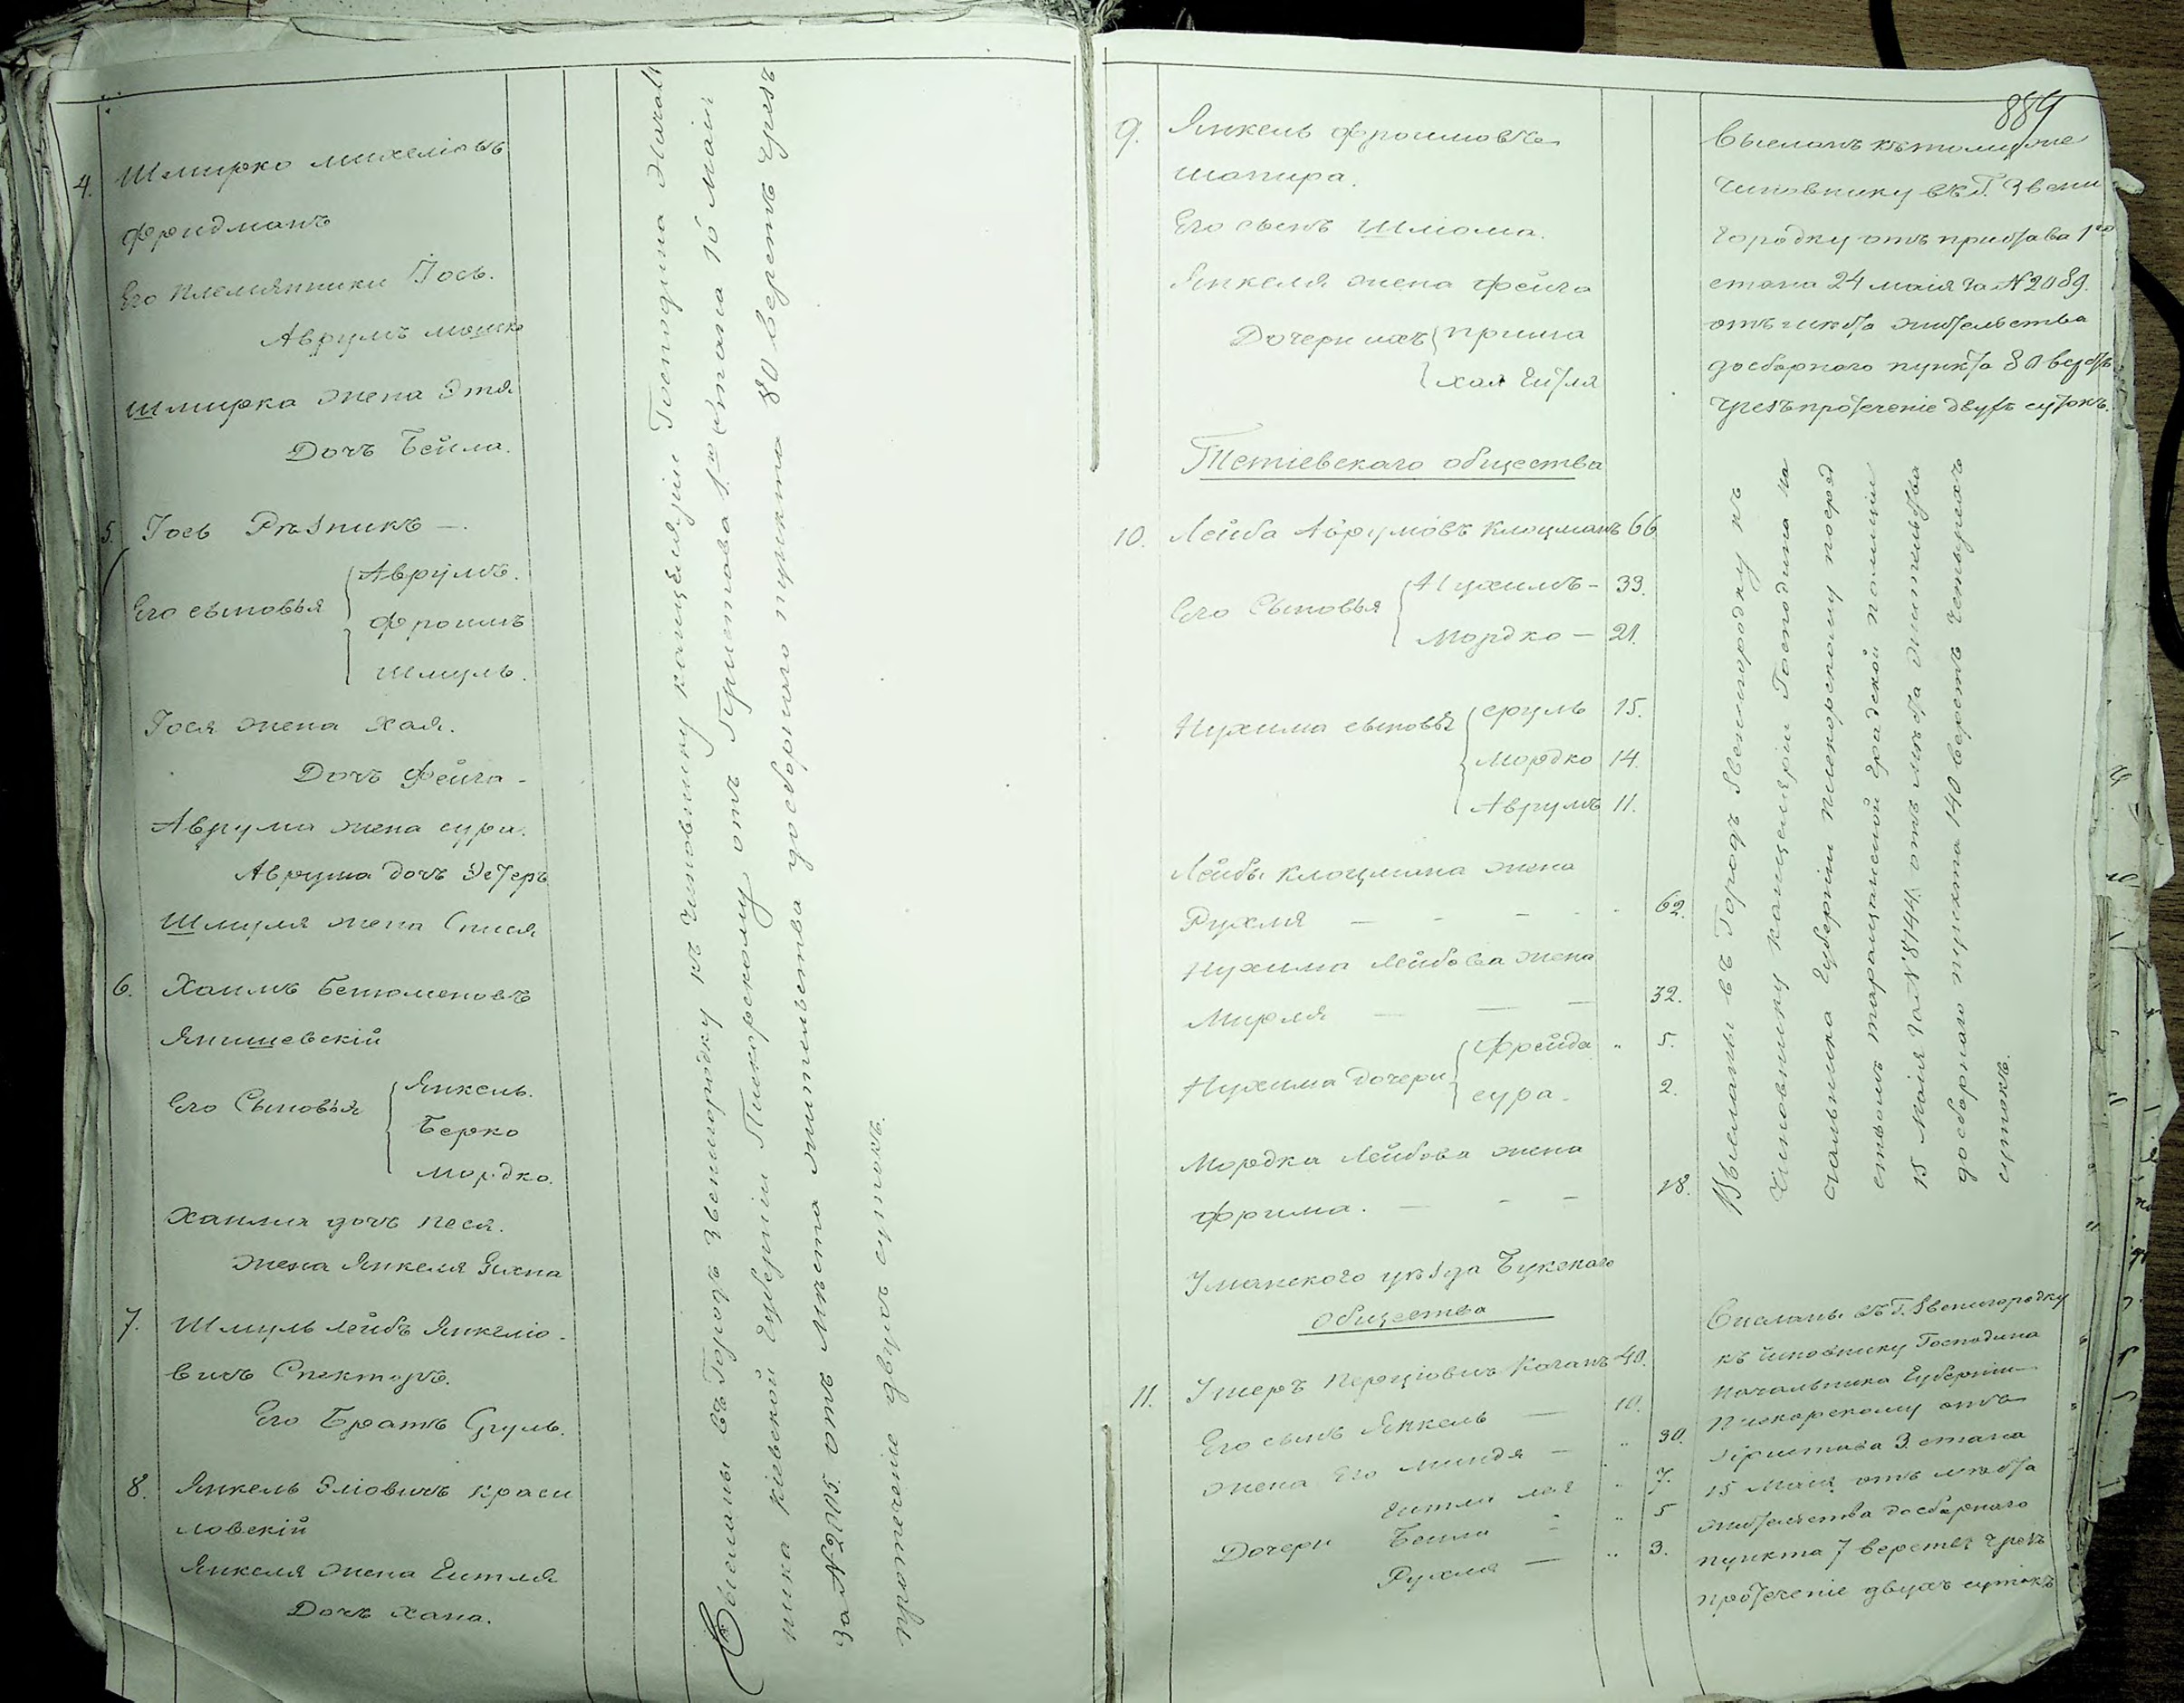 4. Шмирко михеліовъ
Фридманъ
Его племянники Іось.
Аврумъ мошко
Шмирка жена Этя
Дочъ Бейла.
5. Іось Рѣзникъ —.
Его сыновья
Аврумъ.
Фроимъ
Шмуль.
Іося жена Хая.
Дочъ Фейга -
Аврума жена сура.
Аврума дочъ Эстеръ
Шмуля жена
6. Хаимъ
Янишевскій
Его Сыновья
Янкель.
Берко
Мордко.
Хаима дочъ песя.
жена Янкеля
7. Шмуль лейбъ Янкеліо-
вичъ Спекторъ.
Его Братъ Сруль.
8. Янкель Эліовичъ краси
ловскій
Янкеля жена Ейтля
Дочъ хана.
Высланы въ Городъ Звенигородку къ Чиновнику канцеляріи Господина Началь
ника кіевской Губерніи Пискорскому отъ Пристава 1го стана 16 маія
за №2005. отъ мѣста жительства до сборного пункта 80 верстъ чрезъ
протеченіе двухъ сутокъ.
889
9. Янкель Фроимовъ
шапира.
Его сынъ Шліома.
Янкеля жена Фейга
Дочери ихъ
хая Ейтля
Высланъ къ тому же
Чиновнику въ Г. Звени
городку отъ пристава 1го
стана 24 маія за №2089.
жительства
до сборного пункта 80 верстъ
чрезъ протеченіе двухъ сутокъ.
Тетіевскаго общества
10. Лейба Аврумовъ Клоцманъ 66
Его Сыновья
Нухимъ - 39.
Мордко — 21.
Нухима сыновья
сруль 15.
Мордко 14.
Аврумъ 11.
Лейбы Клоцмана жена
Рухля — 62.
Нухима Лейбова жена
Мирля — 32.
Нухима дочери
Фрейда „ 5.
сура. 2.
Мордка Лейбова жена
Фрима. — 18.
Высланы въ Городъ Звенигородку къ
Чиновнику канцеляріи Господина На
чальника Губерніи Пискорскому посред
ствомъ таращанской градской полиціи
15 Маія за №8144. отъ мѣста жительства
до сборнаго пункта 140 верстъ Четырехъ
сутокъ.
Уманского уѣзда Букского
общества
11. Ушеръ Перціовичъ Каганъ 40.
Его сынъ Янкель — 10.
жена Его Миндя — „ 30.
Дочери
Ейтли лея „ 7.
Бейла „ 5
Рухля — „ 3.
Висланы въ Г. Звенигородку
къ чиновнику Господина
Начальника Губерніи
Пискорскому отъ
Пристава 3. стана
15 Маія отъ мѣста
жительства до сборнаго
пункта 7 верстъ чрезъ
протеченіе двухъ сутокъ